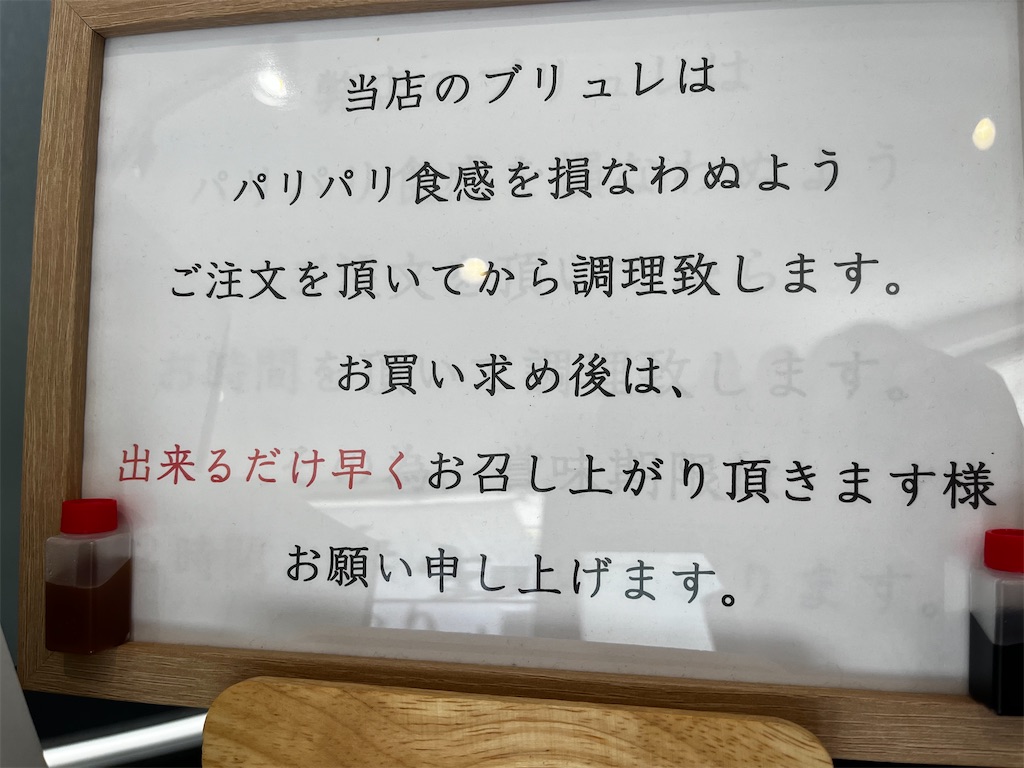 当店のブリュレは
パリパリ食感を損なわぬよう
ご注文を頂いてから調理致します。
お買い求め後は、
出来るだけ早くお召し上がり頂きます様
お願い申し上げます。